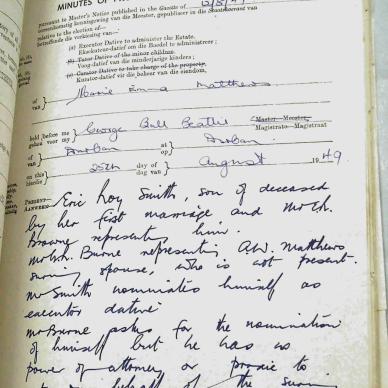 MINUTES OF
pursuant to Master's Notice published in the Gazette of 12/8/49
ooreenkomstig kennisgewing van die Meester, gepubliseer in die Staatskoerant van
relative to the election of—
betreffende die verkiesing van—
(a) Executor Dative to administer the Estate.
Eksekuteur-datief om die Boedel te administreer;
(b) Tutor Dative of the minor children.
Voog-datief van die minderjarige kinders;
(c) Curator Dative to take charge of the property.
Kurator-datief vir die beheer van die eiendom,
of
van
Marie Emma Matthews
held before me
gehou voor my
George Ball Beattie
Master—Meester
Magistrate—Magistraat
of
van
Durban
at
op
Durban
on this
hierdie
25th
day of
dag van
August
1949.
PRESENT—
AANWESIG—
Eric Roy Smith, son of deceased
by her first marriage, and Mr
represents him.
Mr Burne representing A.W. Matthews
spouse, who is not present.
Mr Smith nominates himself as
executor dative
Mr Burne asks for the nomination
of himself but he has no
power of attorney or to
behalf of the